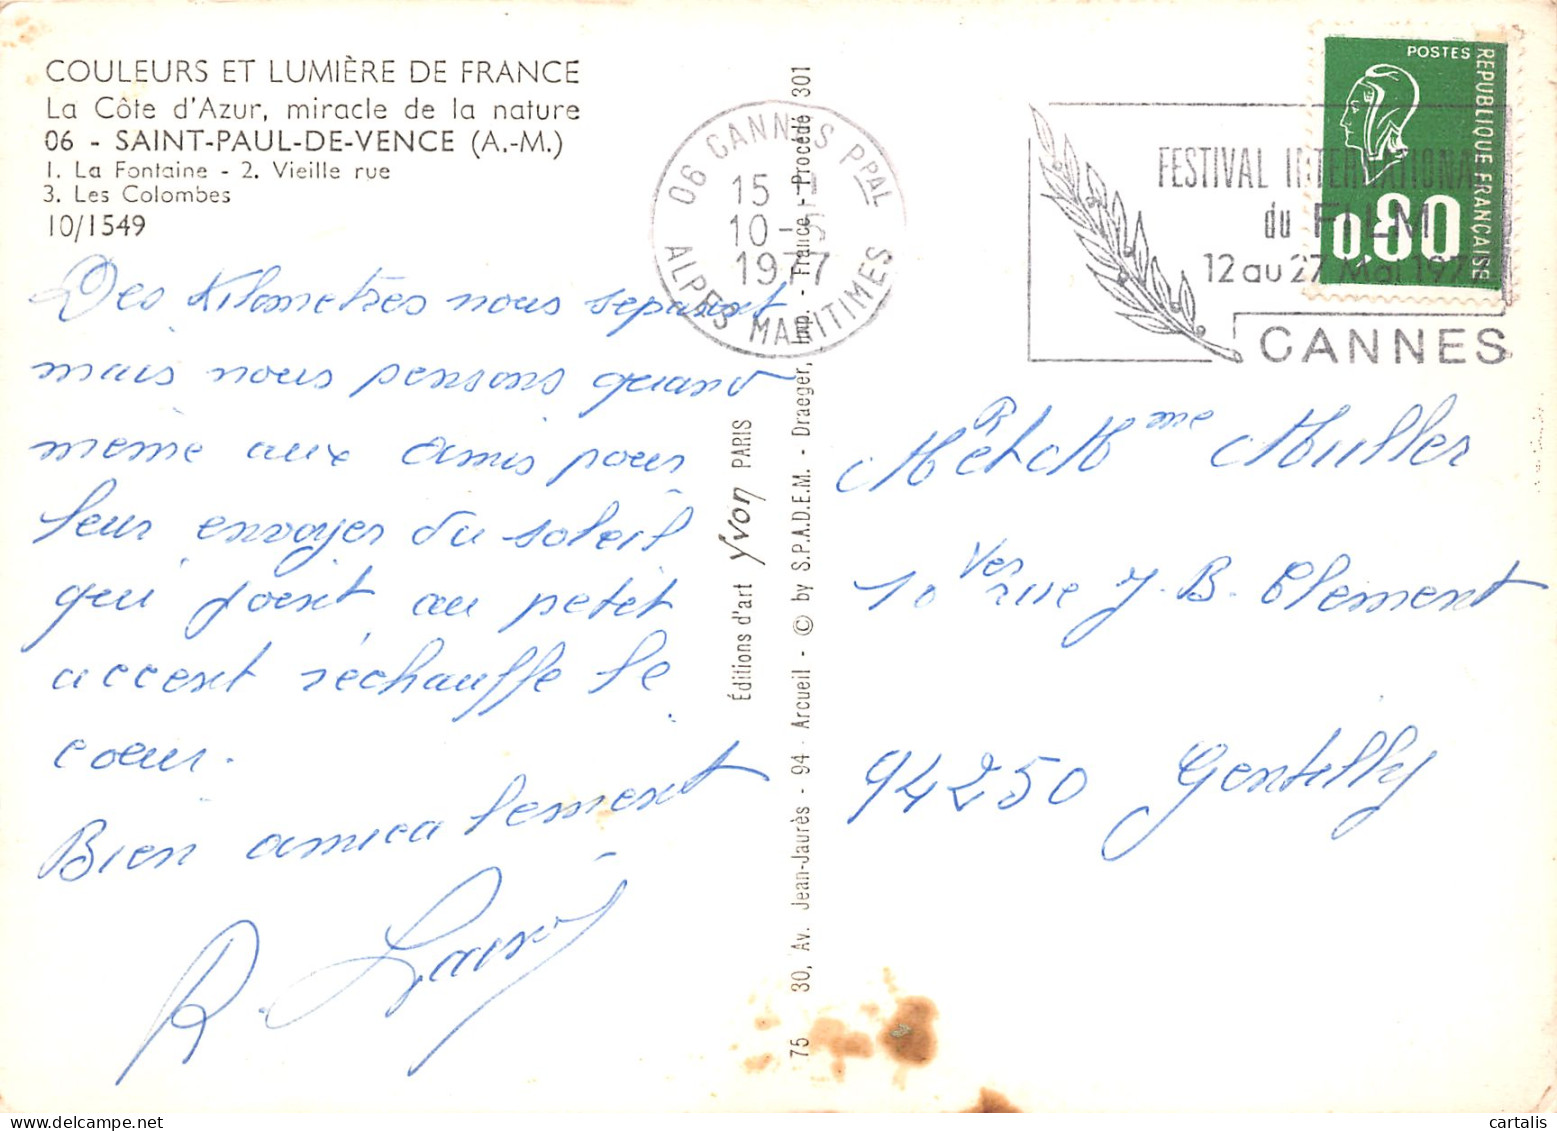 COULEURS ET LUMIÈRE DE FRANCE
La Côte d'Azur, miracle de la nature
06 - SAINT-PAUL-DE-VENCE (A.-M.)
1. La Fontaine - 2. Vieille rue
3. Les Colombes
10/1549
Des Kilometres nous separent
mais nous pensons quand
même aux amis pour
leur envoyer du soleil
qui joint au petit
accent réchauffe le
coeur.
Bien amicalement
R.
Éditions d'art Yvon PARIS
75 30, Av. Jean-Jaurès - 94 - Arcueil - © by S.P.A.D.E.M. - Draeger, Imp. - France - Procédé 301
06 CANNES PPAL
15
10-5
1977
ALPES MARITIMES
FESTIVAL INTERNATIONAL
du FILM
12 au 27 Mai 1977
CANNES
POSTES
REPUBLIQUE FRANÇAISE
0,80
Mr et Mme Muller
10 rue J. B. Clement
94250 Gentilly
cartalis